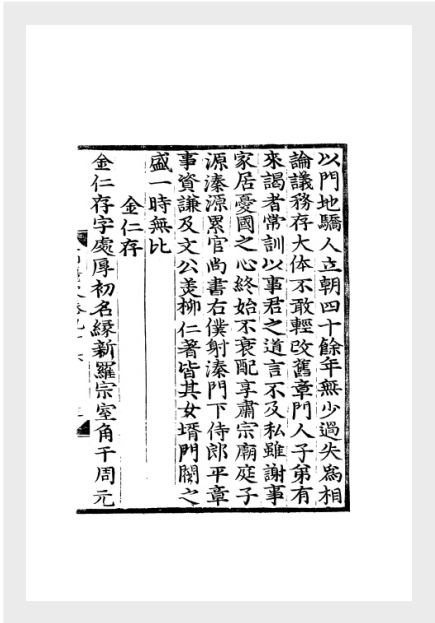 以門地驕人立朝四十餘年無少過失爲相
論議務存大体不敢輕改舊章門人子弟有
來謁者常訓以事君之道言不及私雖謝事
家居憂國之心終始不衰配享肅宗廟庭子
源溱源累官尚書右僕射溱門下侍郎平章
事資謙及文公美柳仁著皆其女壻門閥之
盛一時無比
金仁存
金仁存字處厚初名緣新羅宗室角干周元